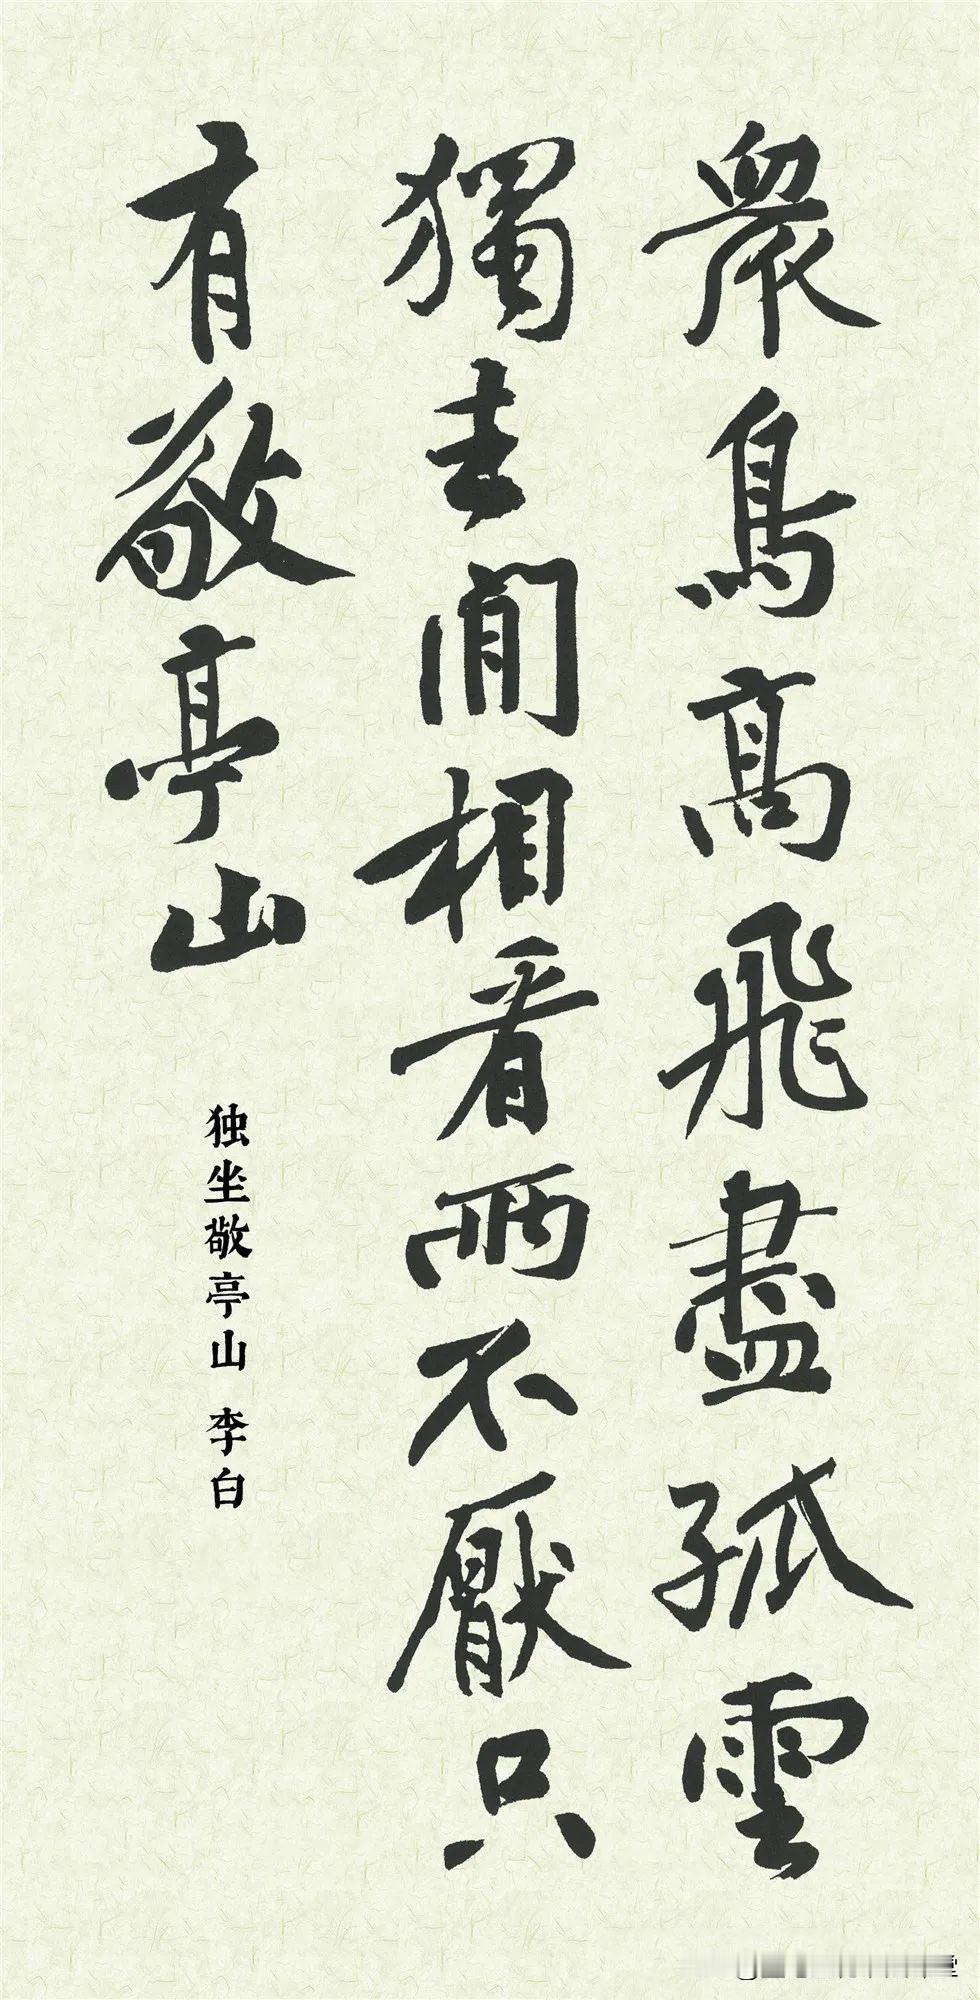 衆鳥高飛盡孤雲
獨去閒相看兩不厭只
有敬亭山
独坐敬亭山 李白